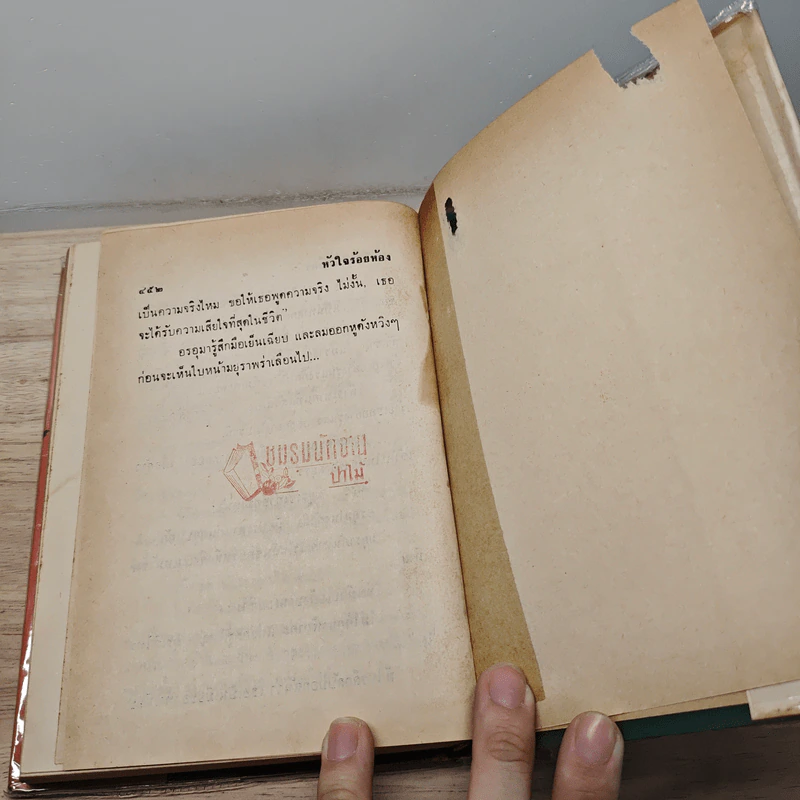 หัวใจร้อยห้อง
๔๕๒
เป็นความจริงไหม ขอให้เธอพูดความจริง ไม่งั้น, เธอ
จะได้รับความเสียใจที่สุดในชีวิต"
อรอุมารู้สึกมือเย็นเฉียบ และลมออกหูดังหวิงๆ
ก่อนจะเห็นใบหน้ามยุราพร่าเลือนไป...
ชมรมนักอ่าน
ป่าไม้